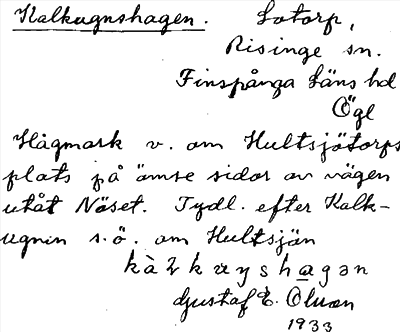 Kalkugnshagen. Lotorp,
Risinge sn.
Finspånga läns hd
Ögl
Hägmark v. om Hultsjötorps
plats på ömse sidor av vägen
utåt Näset. Tydl. efter Kalk-
ugnin s.ö. om Hultsjön
Gustaf E. Olsson
1933